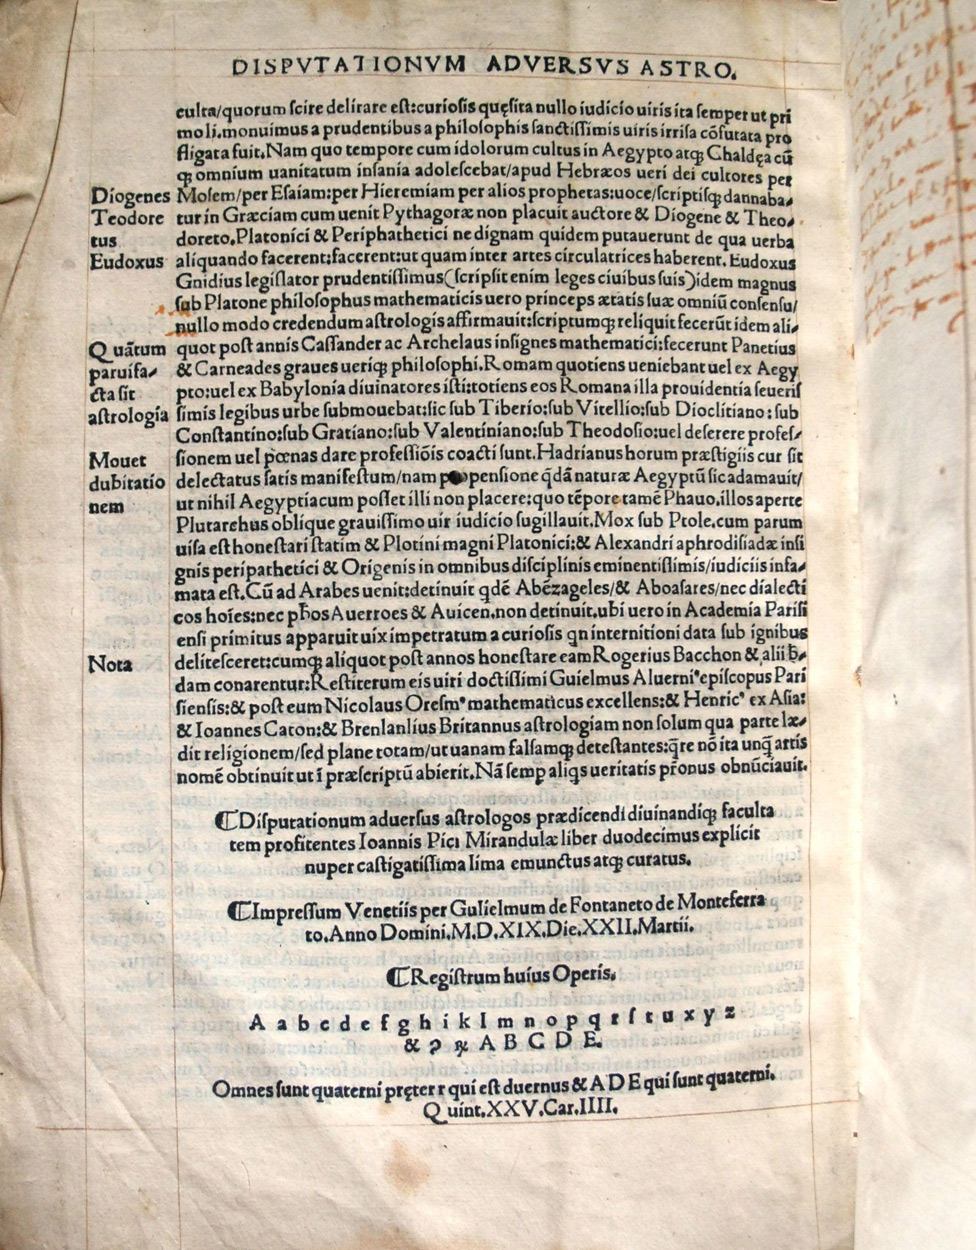 DISPVTATIONVM ADVERSVS ASTRO.
culta/quorum scire delirare est:curiosis quęsita nullo iudicio uiris ita semper ut pri
mo li.monuimus a prudentibus a philosophis sanctissimis uiris irrisa cõfutata pro
fligata fuit.Nam quo tempore cum idolorum cultus in Aegypto atqꝫ Chaldęa cũ
qꝫ omnium uanitatum insania adolescebat/apud Hebræos ueri dei cultores per
Diogenes Mosem/per Esaiam:per Hieremiam per alios prophetas:uoce/scriptisqꝫ dannaba/
Teodore tur in Græciam cum uenit Pythagoræ non placuit auctore & Diogene & Theo/
tus doreto.Platonici & Periphathetici ne dignam quidem putauerunt de qua uerba
Eudoxus aliquando facerent:facerent:ut quam inter artes circulatrices haberent. Eudoxus
Gnidius legislator prudentissimus(scripsit enim leges ciuibus suis)idem magnus
sub Platone philosophus mathematicis uero princeps ætatis suæ omniũ consensu/
nullo modo credendum astrologis affirmauit:scriptumqꝫ reliquit fecerũt idem ali/
Quãtum quot post annis Cassander ac Archelaus insignes mathematici:fecerunt Panetius
paruifa/ & Carneades graues ueriqꝫ philosophi.Romam quotiens ueniebant uel ex Aegy
cta sit pto:uel ex Babylonia diuinatores isti:totiens eos Romana illa prouidentia seueris
astrologia simis legibus urbe submouebat:sic sub Tiberio:sub Vitellio:sub Dioclitiano:sub
Constantino:sub Gratiano:sub Valentiniano:sub Theodosio:uel deserere profes/
Mouet sionem uel pœnas dare professiõis coacti sunt.Hadrianus horum præstigiis cur sit
dubitatio delectatus satis manifestum/nam propensione qdã naturæ Aegyptũ sic adamauit/
nem ut nihil Aegyptiacum posset illi non placere:quo tẽpore tamẽ Phauo.illos aperte
Plutarchus oblique grauissimo uir iudicio sugillauit.Mox sub Ptole.cum parum
uisa est honestari statim & Plotini magni Platonici:& Alexandri aphrodisiadæ insi
gnis peripathetici & Origenis in omnibus disciplinis eminentissimis/iudiciis infa/
mata est.Cũ ad Arabes uenit:detinuit qdẽ Abẽzageles/& Aboasares/nec dialecti
cos hoies:nec pħos Auerroes & Auicen.non detinuit.ubi uero in Academia Parisi
ensi primitus apparuit uix impetratum a curiosis qn internitioni data sub ignibus
Nota delitesceret:cumqꝫ aliquot post annos honestare eam Rogerius Bacchon & alii
dam conarentur:Restiterum eis uiri doctissimi Guielmus Aluerniꝰ episcopus Pari
siensis:& post eum Nicolaus Oresmꝰ mathematicus excellens:& Henricꝰ ex Asia:
& Ioannes Caton:& Brenlanlius Britannus astrologiam non solum qua parte læ/
dit religionem/sed plane totam/ut uanam falsamqꝫ detestantes:q̃re nõ ita unq̃ artis
nomẽ obtinuit ut ĩ præscriptũ abierit.Nã semp aliqs ueritatis põnus obnũciauit.
⸿Disputationum aduersus astrologos prædicendi diuinandiqꝫ faculta
tem profitentes Ioannis Pici Mirandulæ liber duodecimus explicit
nuper castigatissima lima emunctus atqꝫ curatus.
⸿Impressum Venetiis per Gulielmum de Fontaneto de Monteferra
to.Anno Domini.M.D.XIX.Die.XXII.Martii.
⸿Registrum huius Operis.
A a b c d e f g h i k l m n o p q r s t u x y z
& ꝯ ꝶ A B C D E.
Omnes sunt quaterni pręter r qui est duernus & A D E qui sunt quaterni.
Quint.XXV.Car.IIII.